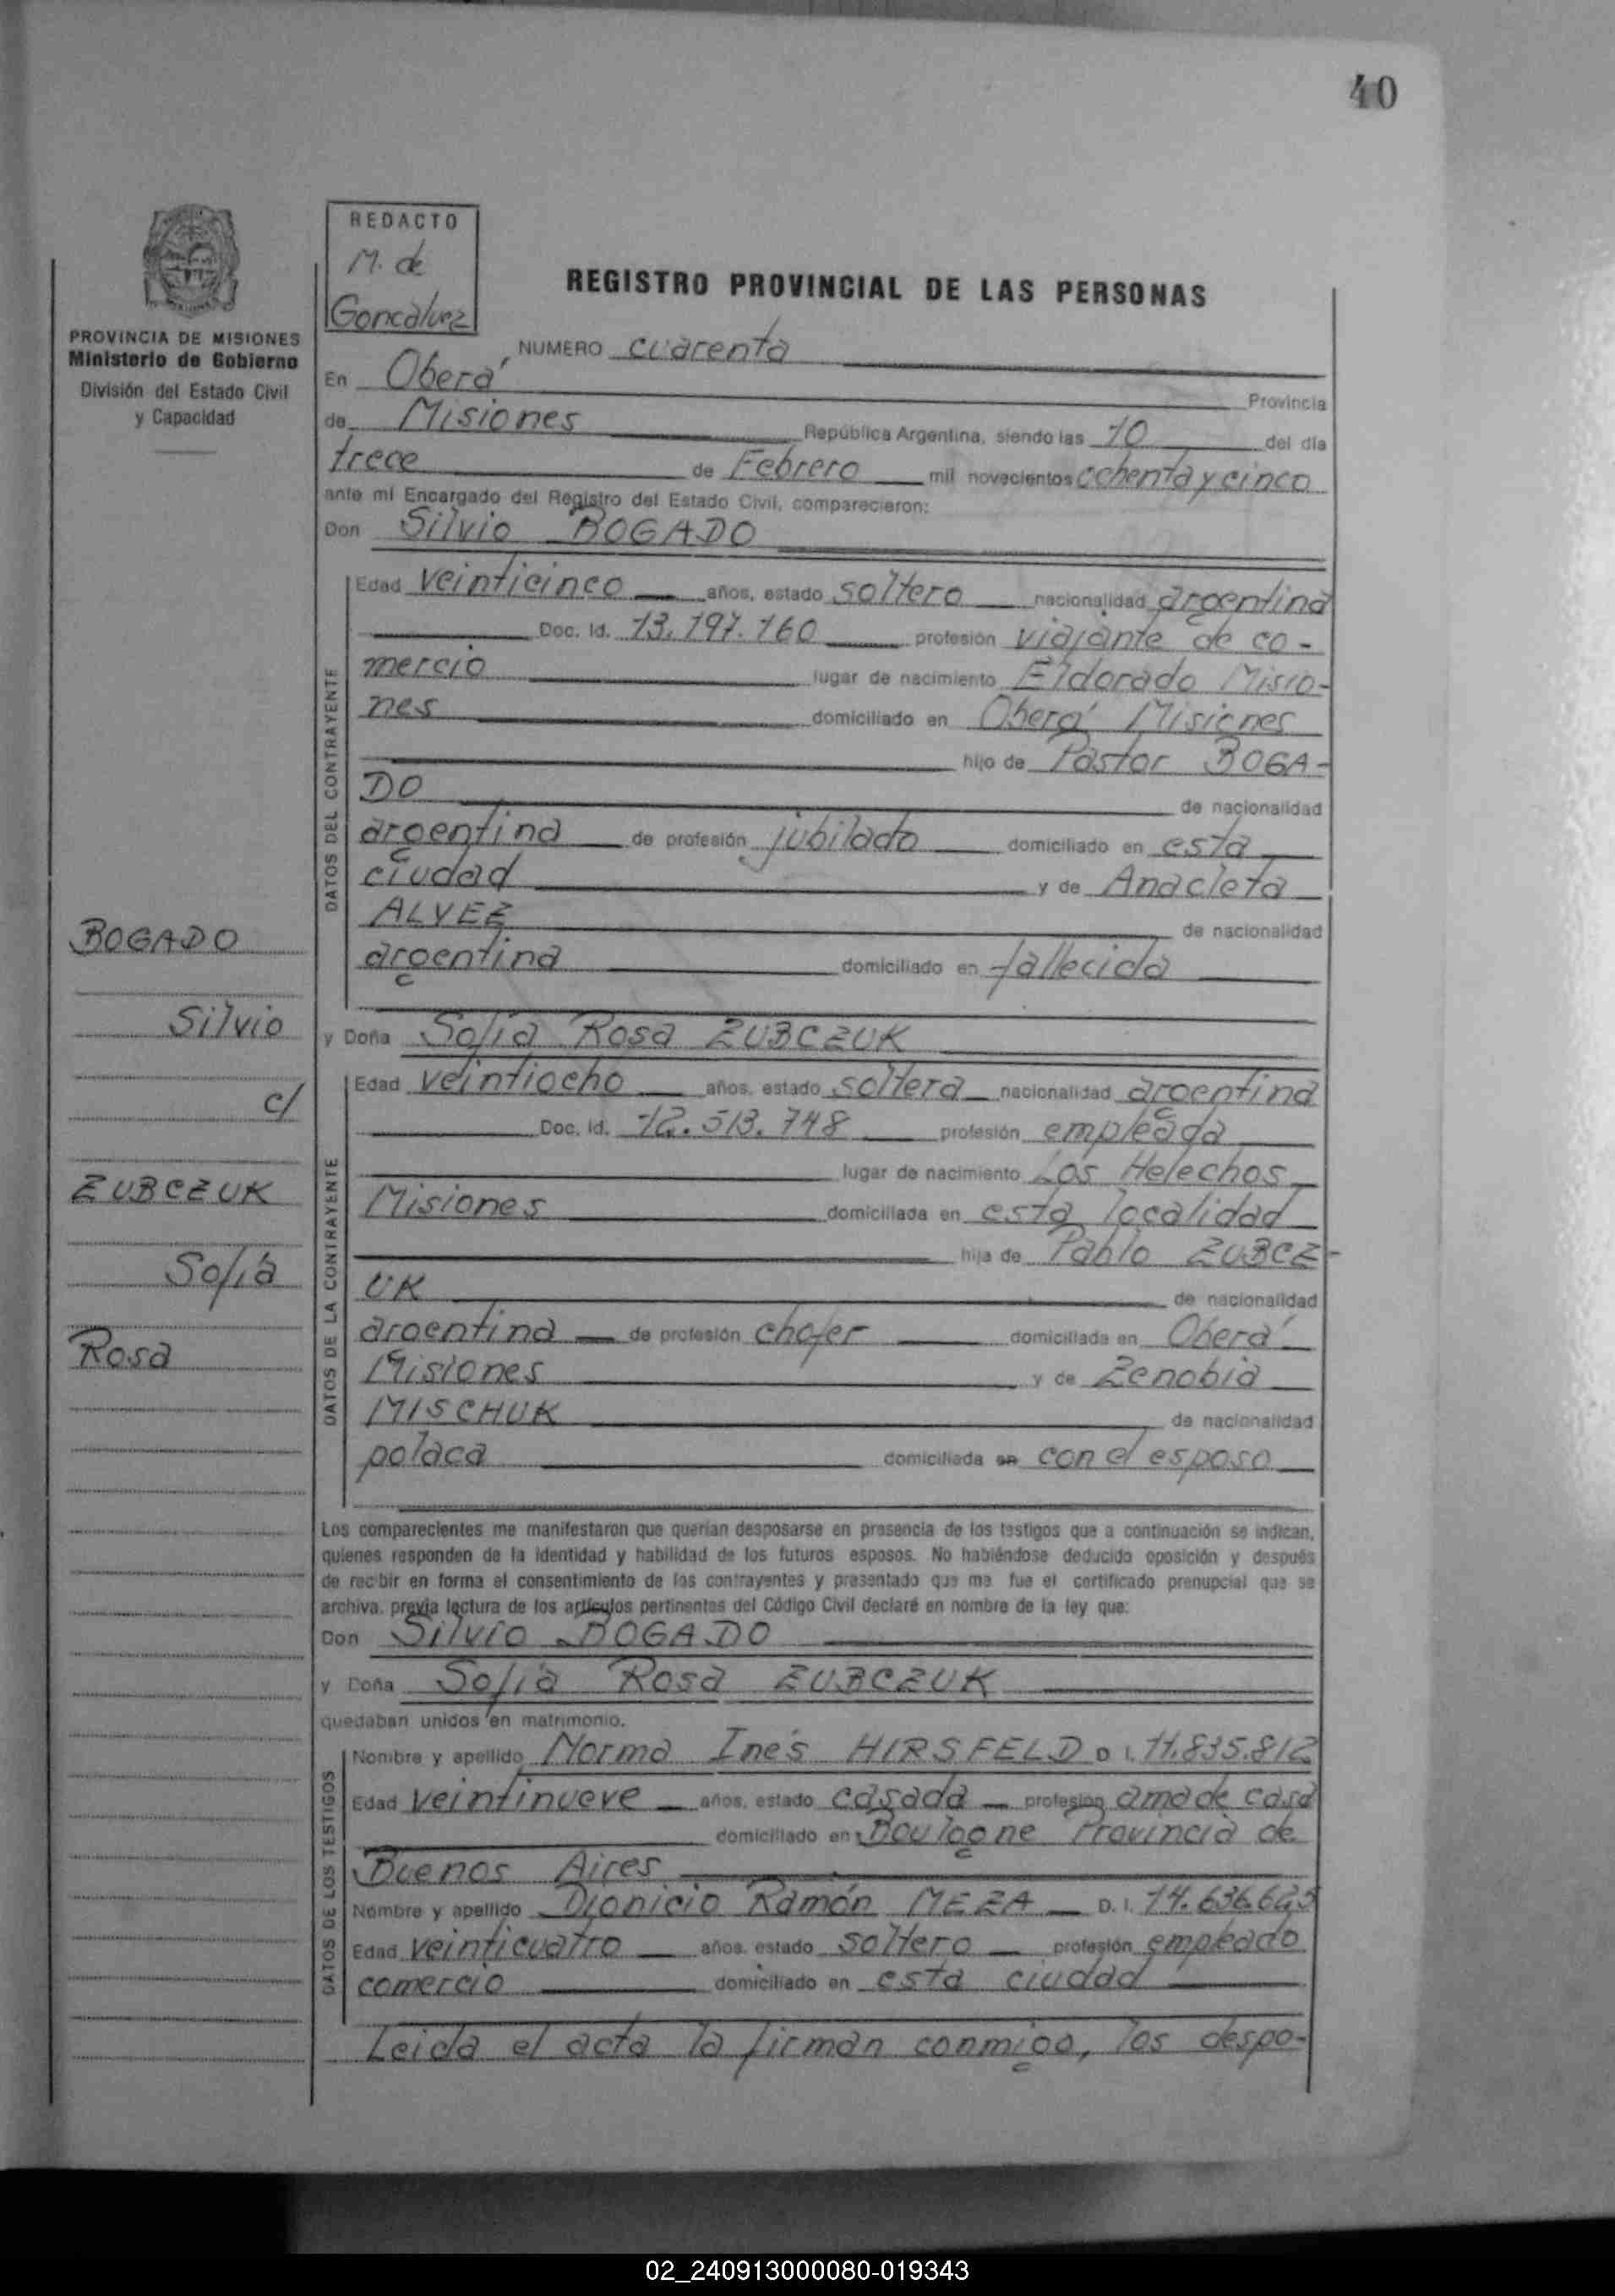 40
REDACTO
M. de
Goncalvez
PROVINCIA DE MISIONES
Ministerio de Gobierno
División del Estado Civil
y Capacidad
REGISTRO PROVINCIAL DE LAS PERSONAS
NUMERO cuarenta
En Oberá Provincia
de Misiones República Argentina, siendo las 10 del día
trece de Febrero mil novecientos ochenta y cinco
ante mí Encargado del Registro del Estado Civil, comparecieron:
Don Silvio BOGADO
DATOS DEL CONTRAYENTE
Edad veinticinco años, estado soltero nacionalidad argentina
Doc. Id. 13.197.160 profesión viajante de co-
mercio lugar de nacimiento Eldorado Misio-
nes domiciliado en Oberá Misiones
hijo de Pastor BOGA-
DO de nacionalidad
argentina de profesión jubilado domiciliado en esta
ciudad y de Anacleta
ALVEZ de nacionalidad
argentina domiciliado en fallecida
y Doña Sofía Rosa ZUBCZUK
DATOS DE LA CONTRAYENTE
Edad veintiocho años, estado soltera nacionalidad argentina
Doc. Id. 12.513.748 profesión empleada
lugar de nacimiento Los Helechos
Misiones domiciliada en esta localidad
hija de Pablo ZUBCZ-
UK de nacionalidad
argentina de profesión chofer domiciliada en Oberá
Misiones y de Zenobia
MISCHUK de nacionalidad
polaca domiciliada en con el esposo
BOGADO
Silvio
c/
ZUBCZUK
Sofía
Rosa
Los comparecientes me manifestaron que querían desposarse en presencia de los testigos que a continuación se indican,
quienes responden de la identidad y habilidad de los futuros esposos. No habiéndose deducido oposición y después
de recibir en forma el consentimiento de los contrayentes y presentado que me fue el certificado prenupcial que se
archiva, previa lectura de los artículos pertinentes del Código Civil declaré en nombre de la ley que:
Don Silvio BOGADO
y Doña Sofía Rosa ZUBCZUK
quedaban unidos en matrimonio.
DATOS DE LOS TESTIGOS
Nombre y apellido Norma Inés HIRSFELD D I. 11.835.812
Edad veintinueve años, estado casada profesión ama de casa
domiciliado en Boulogne Provincia de
Buenos Aires
Nombre y apellido Dionicio Ramón MEZA D. I. 14.636.625
Edad veinticuatro años, estado soltero profesión empleado
comercio domiciliado en esta ciudad
Leida el acta la firman conmigo, los despo-
02_240913000080-019343